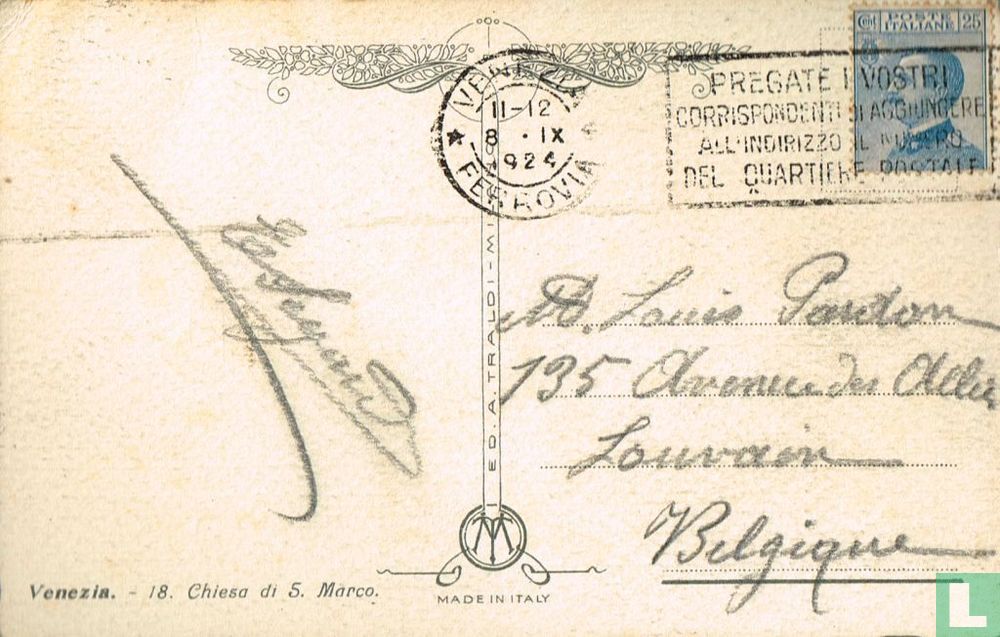 Cent POSTE ITALIANE 25
VENEZIA
11-12
8 · IX
1924
FERROVIA
PREGATE I VOSTRI
CORRISPONDENTI DI AGGIUNGERE
ALL'INDIRIZZO IL NUMERO
DEL QUARTIERE POSTALE
ED. A. TRALDI - MI
Louis Pardon
135 Avenue des Alliés
Louvain
Belgique
Venezia. - 18. Chiesa di S. Marco.
MADE IN ITALY
L